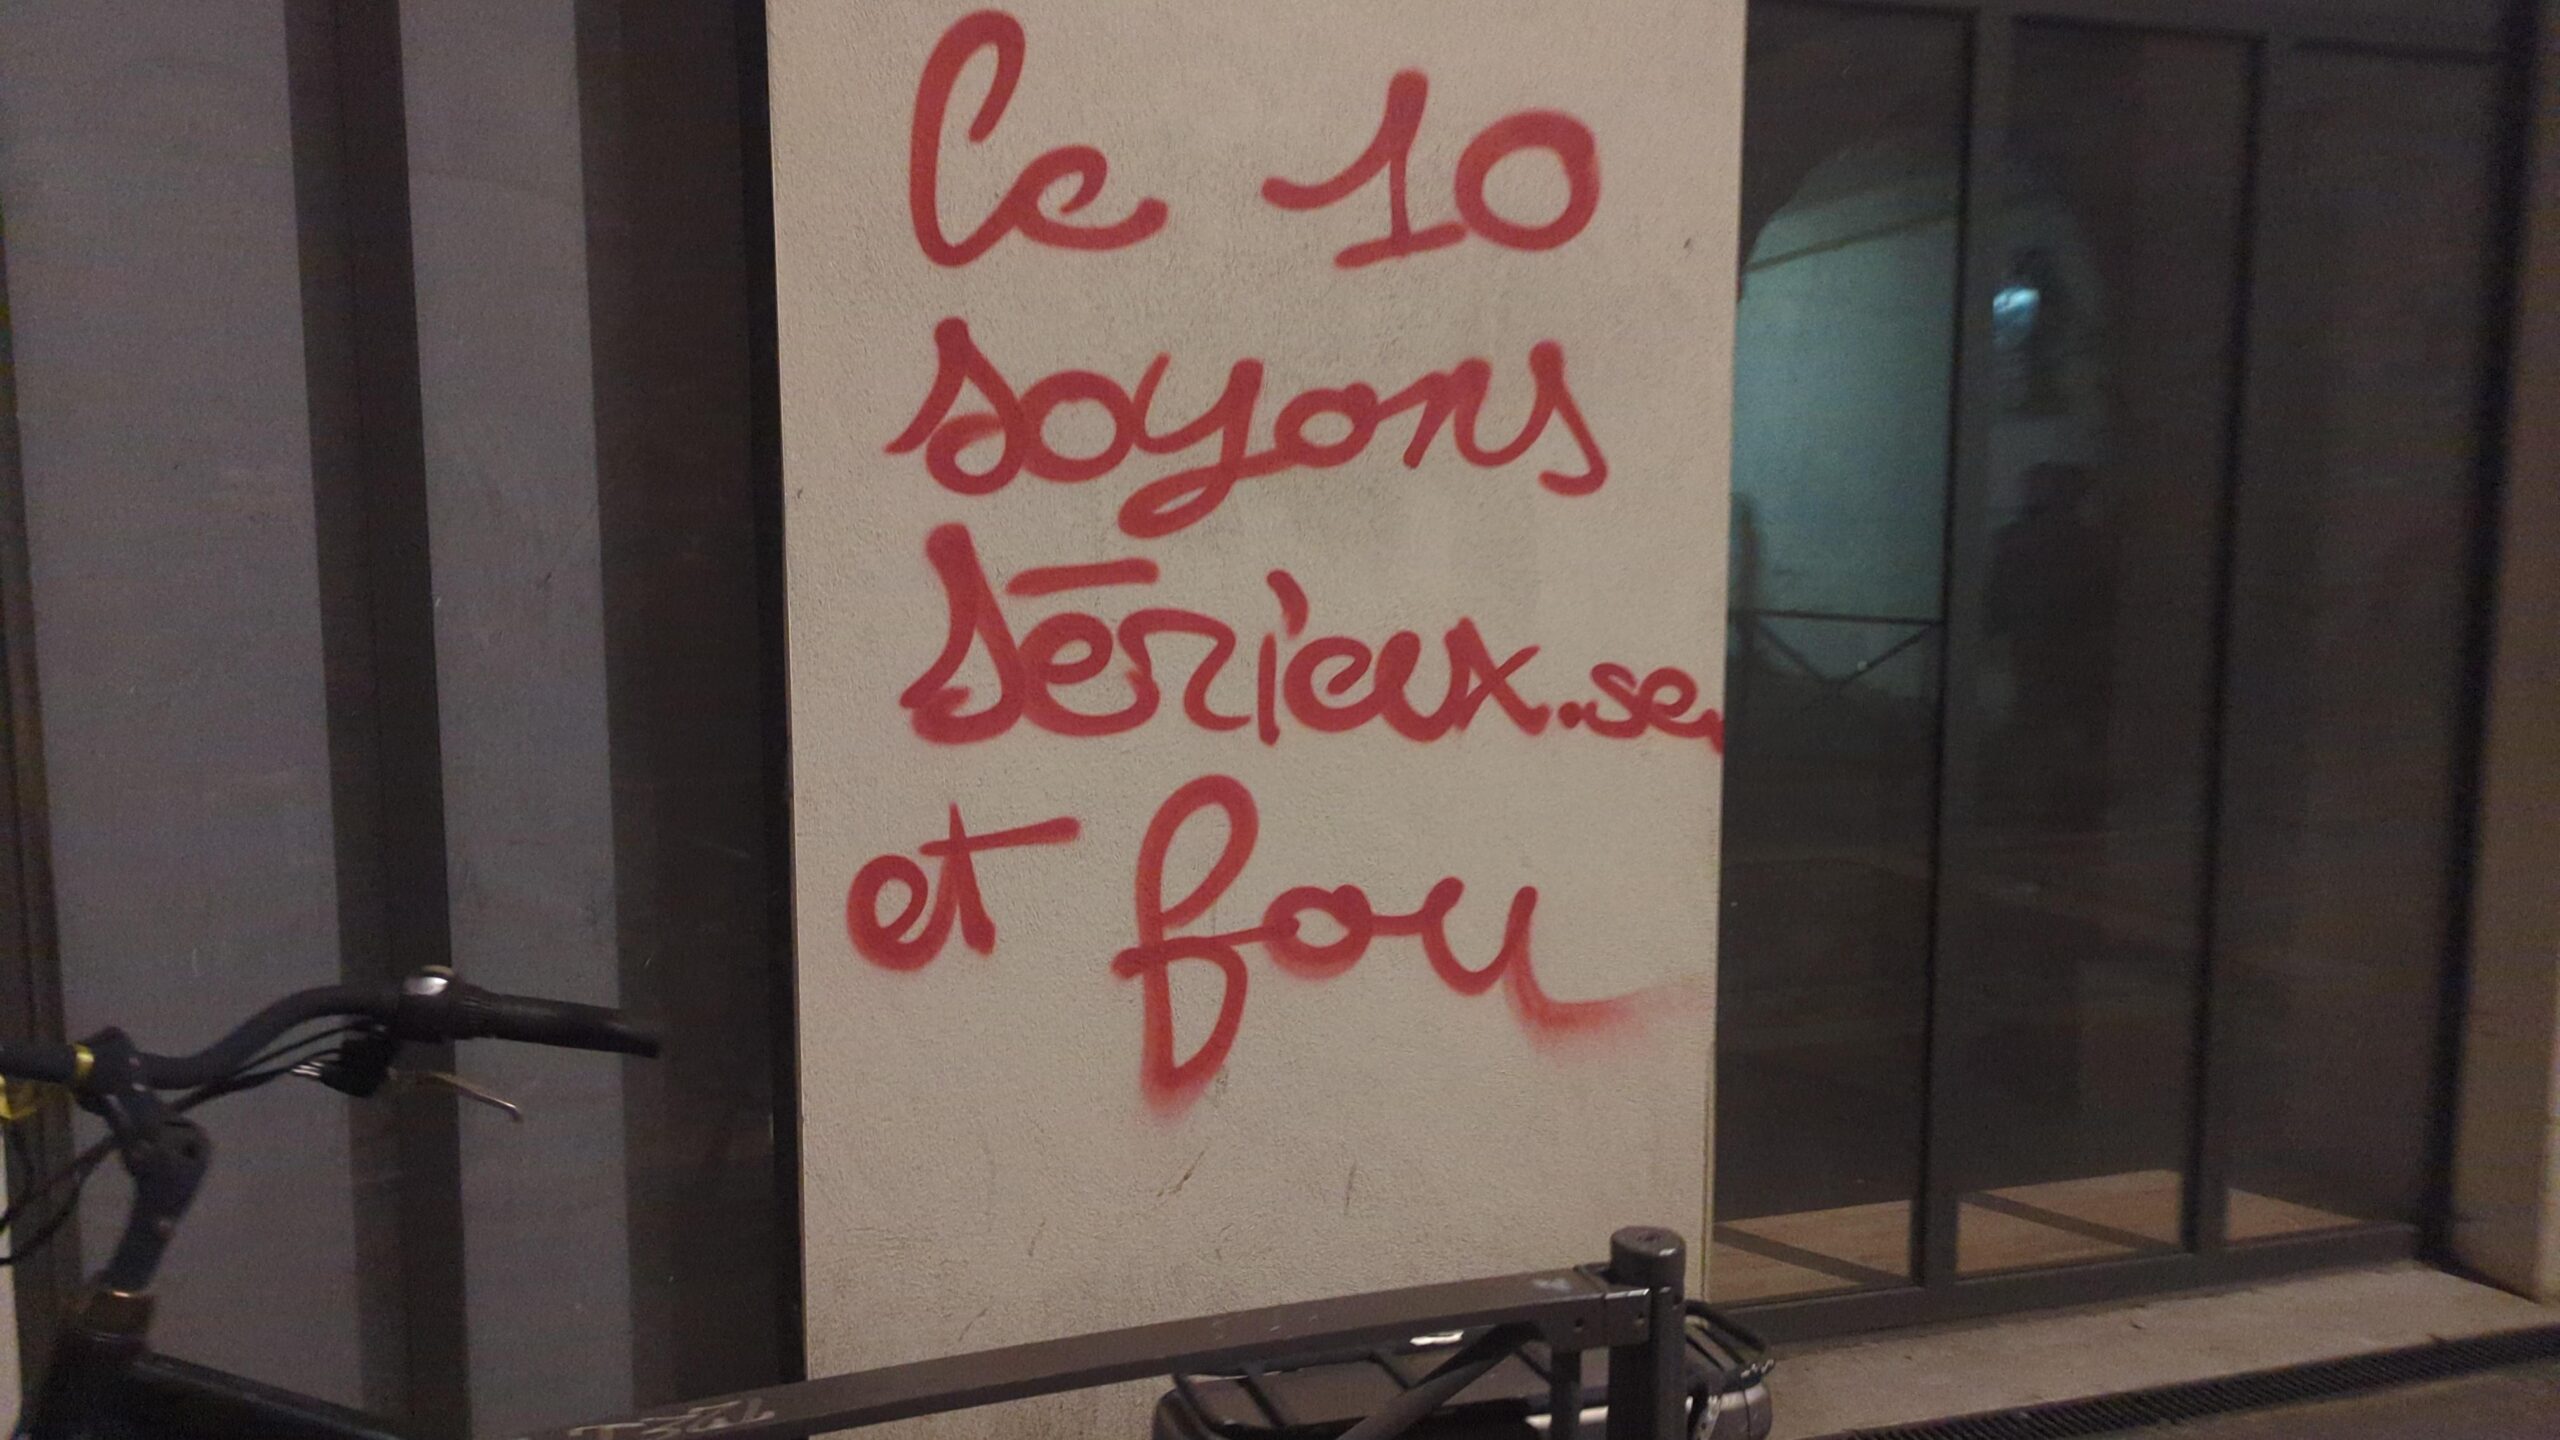 le 10
soyons
sérieux.se.
et fou